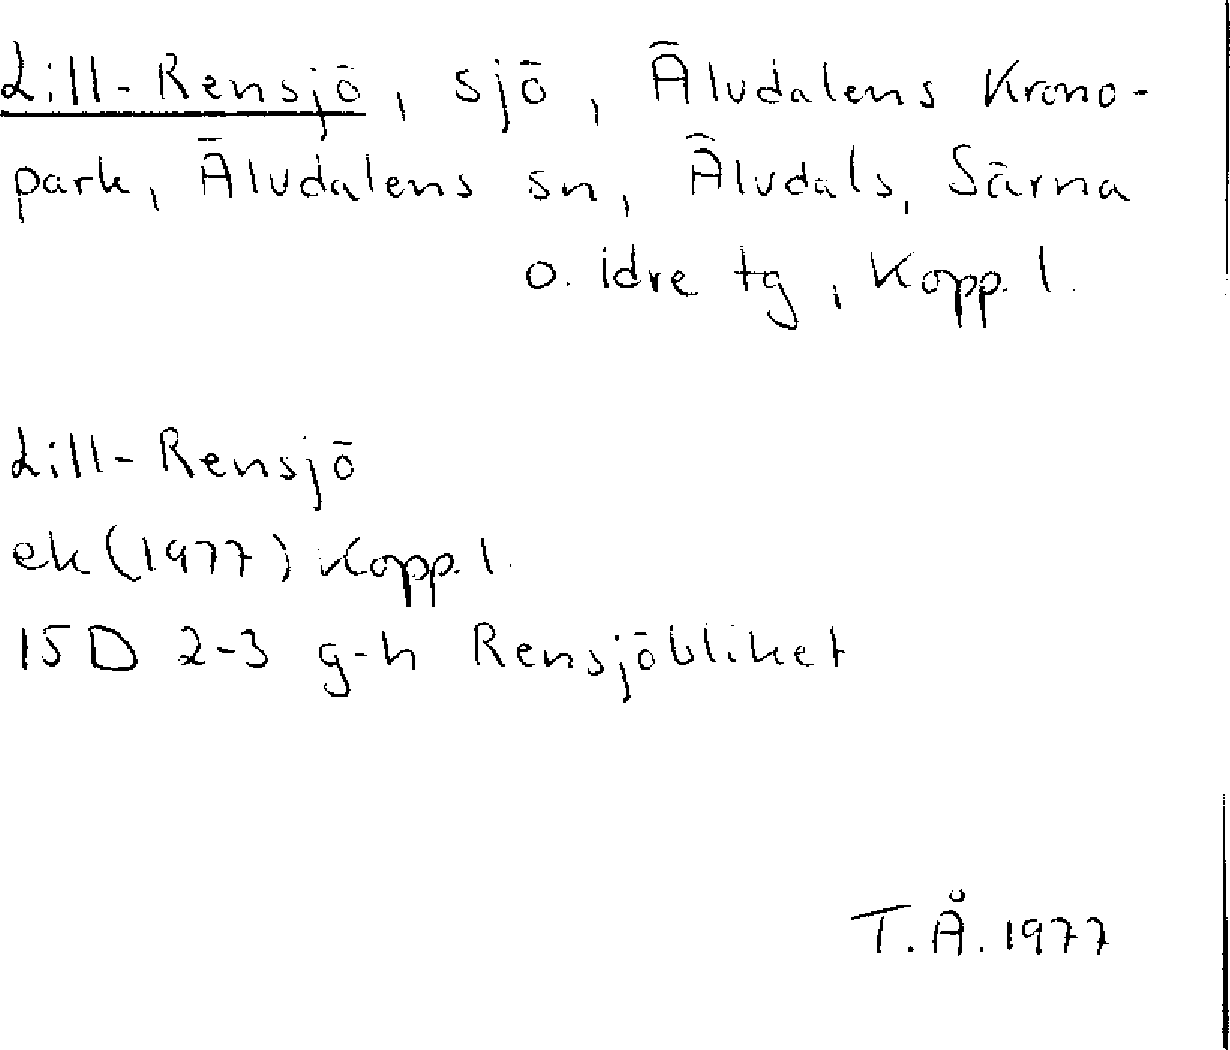 Lill-Rensjö, sjö, Älvdalens Krono-
park, Älvdalens sn, Älvdals, Särna
o. Idre tg, Kopp. l.
Lill-Rensjö
ek (1977) Kopp. l.
15D 2-3 g-h Rensjöbliket
T.Å. 1977